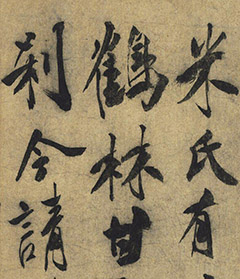 米氏有
鶴林甘
刹今請